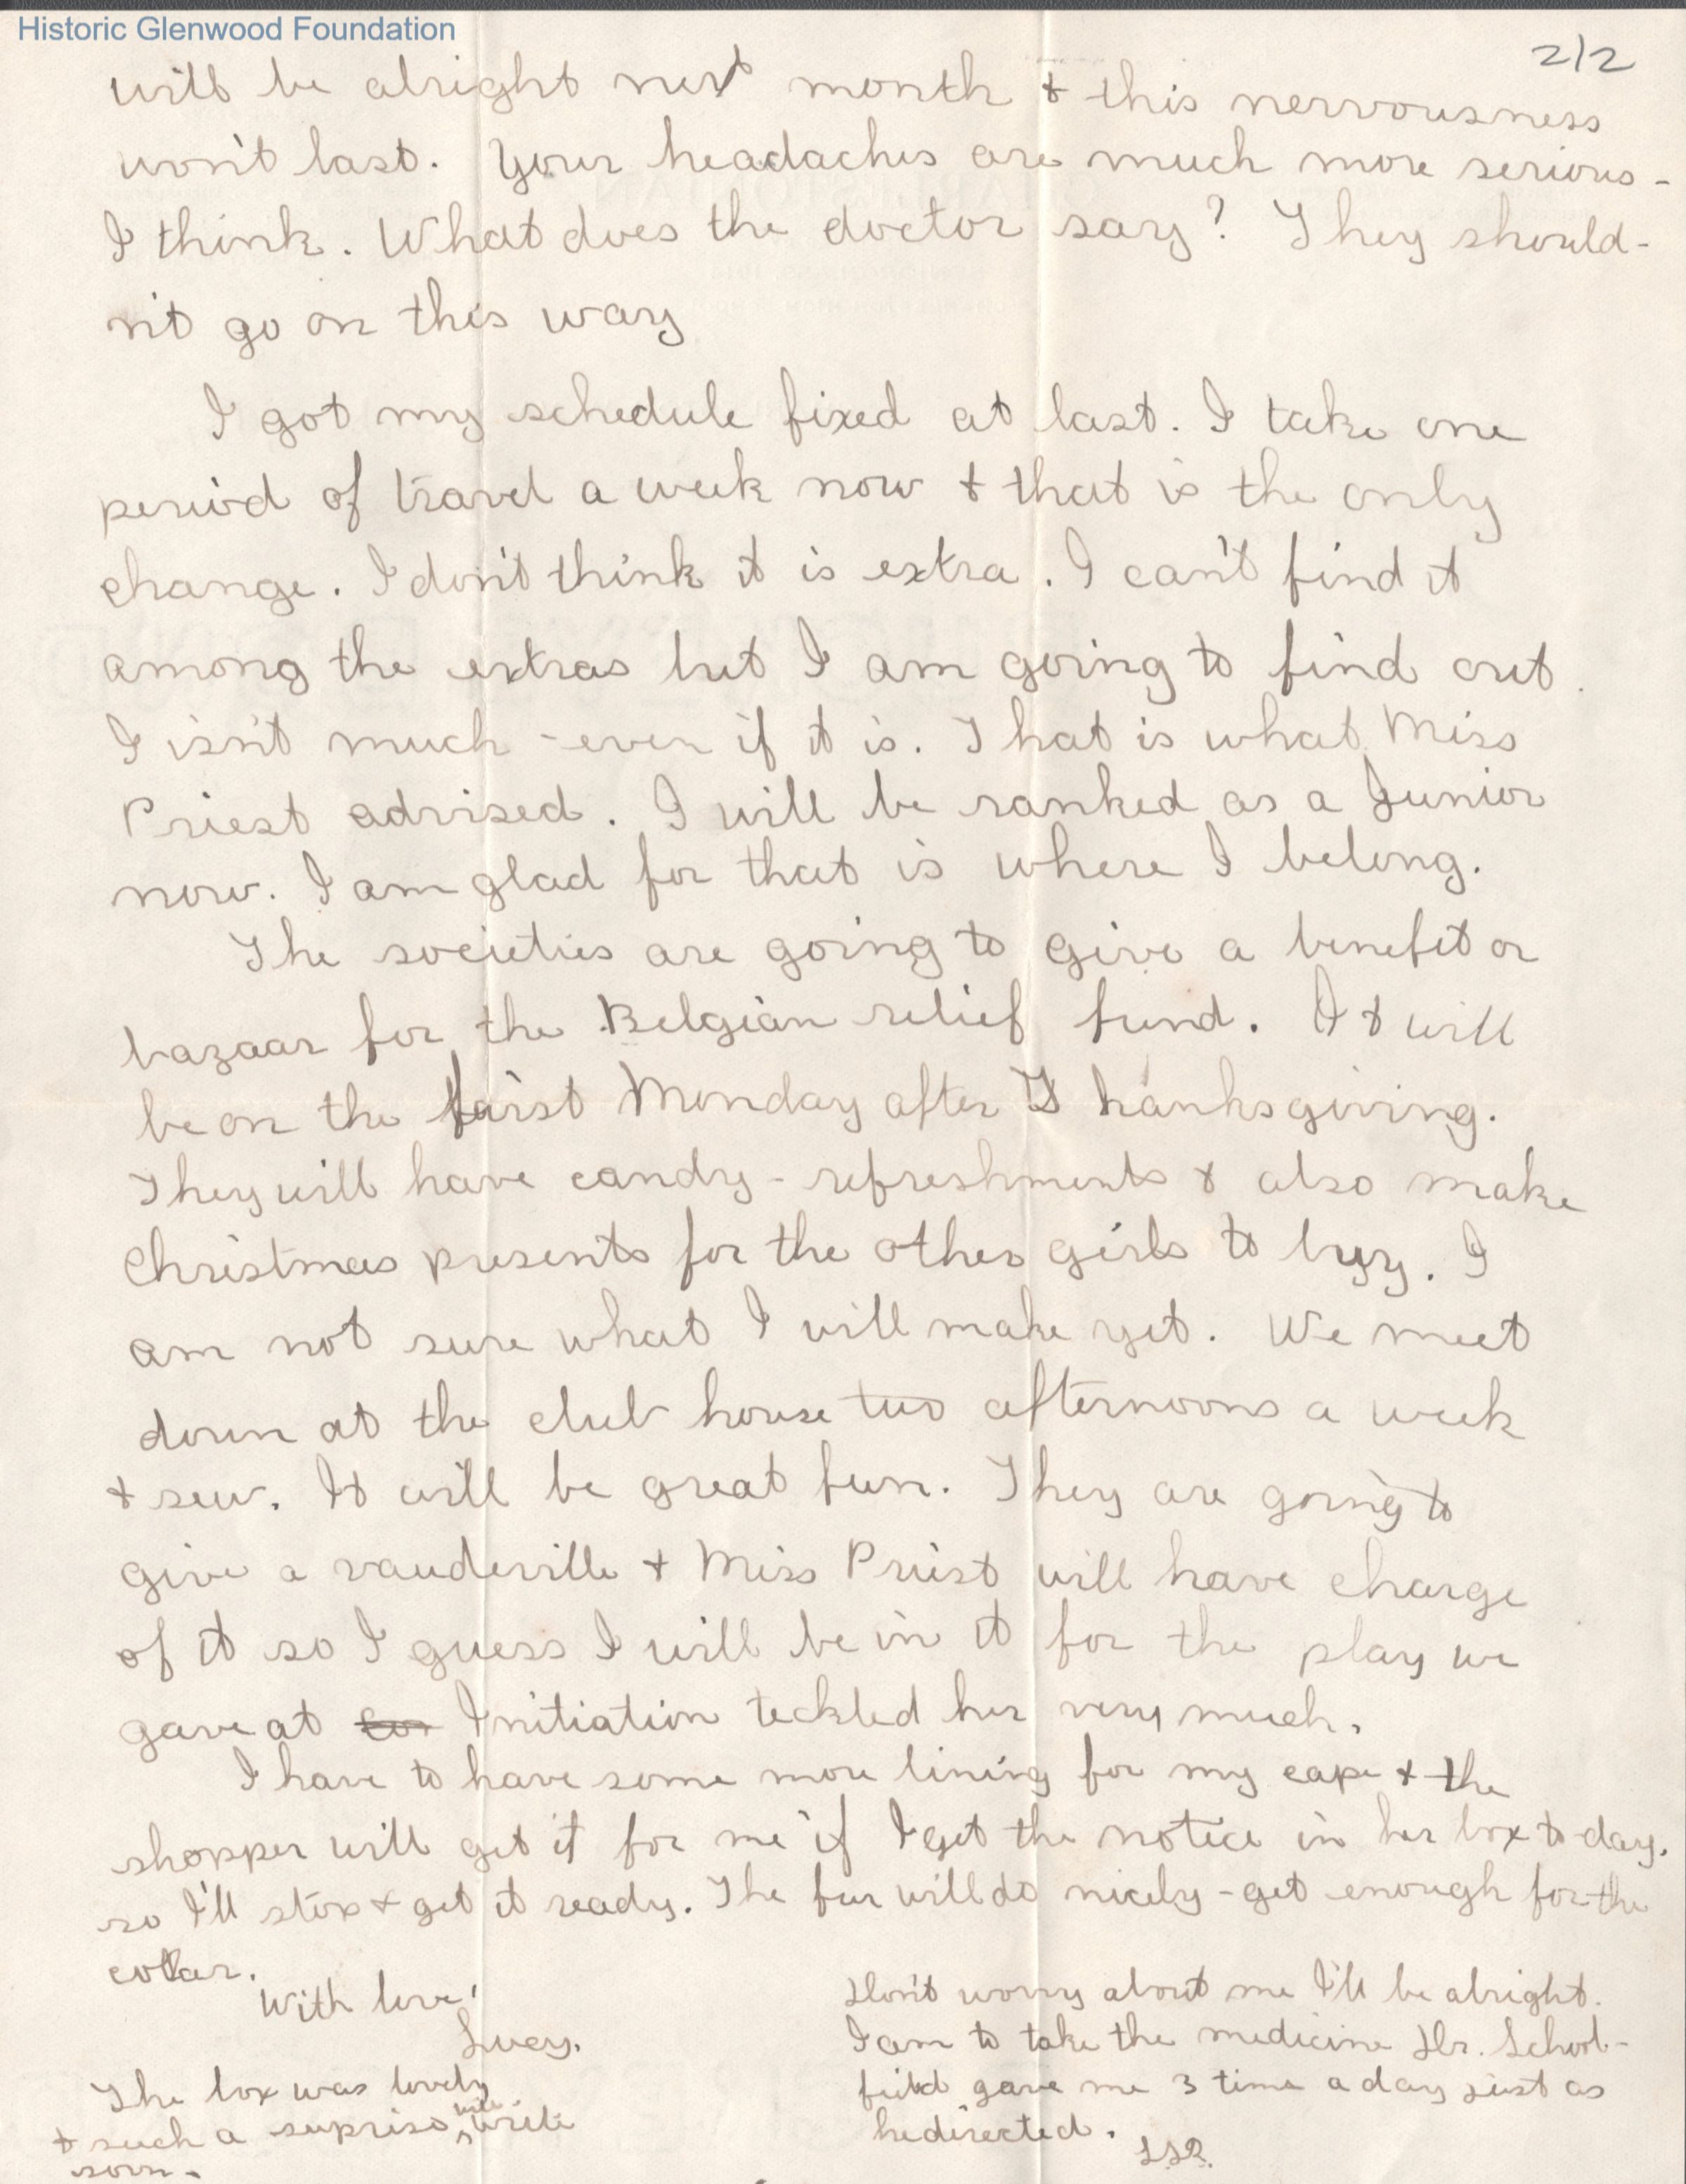 Historic Glenwood Foundation
2/2
will be alright next month & this nervousness
won't last. Your headaches are much more serious -
I think. What does the doctor say? They should-
n't go on this way
I got my schedule fixed at last. I take one
period of travel a week now & that is the only
change. I don't think it is extra. I can't find it
among the extras but I am going to find out.
I isn't much - even if it is. That is what Miss
Priest advised. I will be ranked as a Junior
now. I am glad for that is where I belong.
The societies are going to give a benefit or
bazaar for the Belgian relief fund. It will
be on the first Monday after Thanksgiving.
They will have candy - refreshments & also make
Christmas presents for the other girls to buy. I
am not sure what I will make yet. We meet
down at the club house two afternoons a week
& sew. It will be great fun. They are going to
give a vaudeville & Miss Priest will have charge
of it so I guess I will be in it for the play we
gave at Initiation teckled her very much.
I have to have some more lining for my cape & the
shopper will get it for me if I get the notice in her box to-day.
so I'll stop & get it ready. The fur will do nicely - get enough for the
collar.
With love,
Lucy.
The box was lovely
& such a supriso write
soon -
Don't worry about me I'll be alright.
I am to take the medicine Dr. School-
field gave me 3 time a day just as
he directed.
L.S.R.